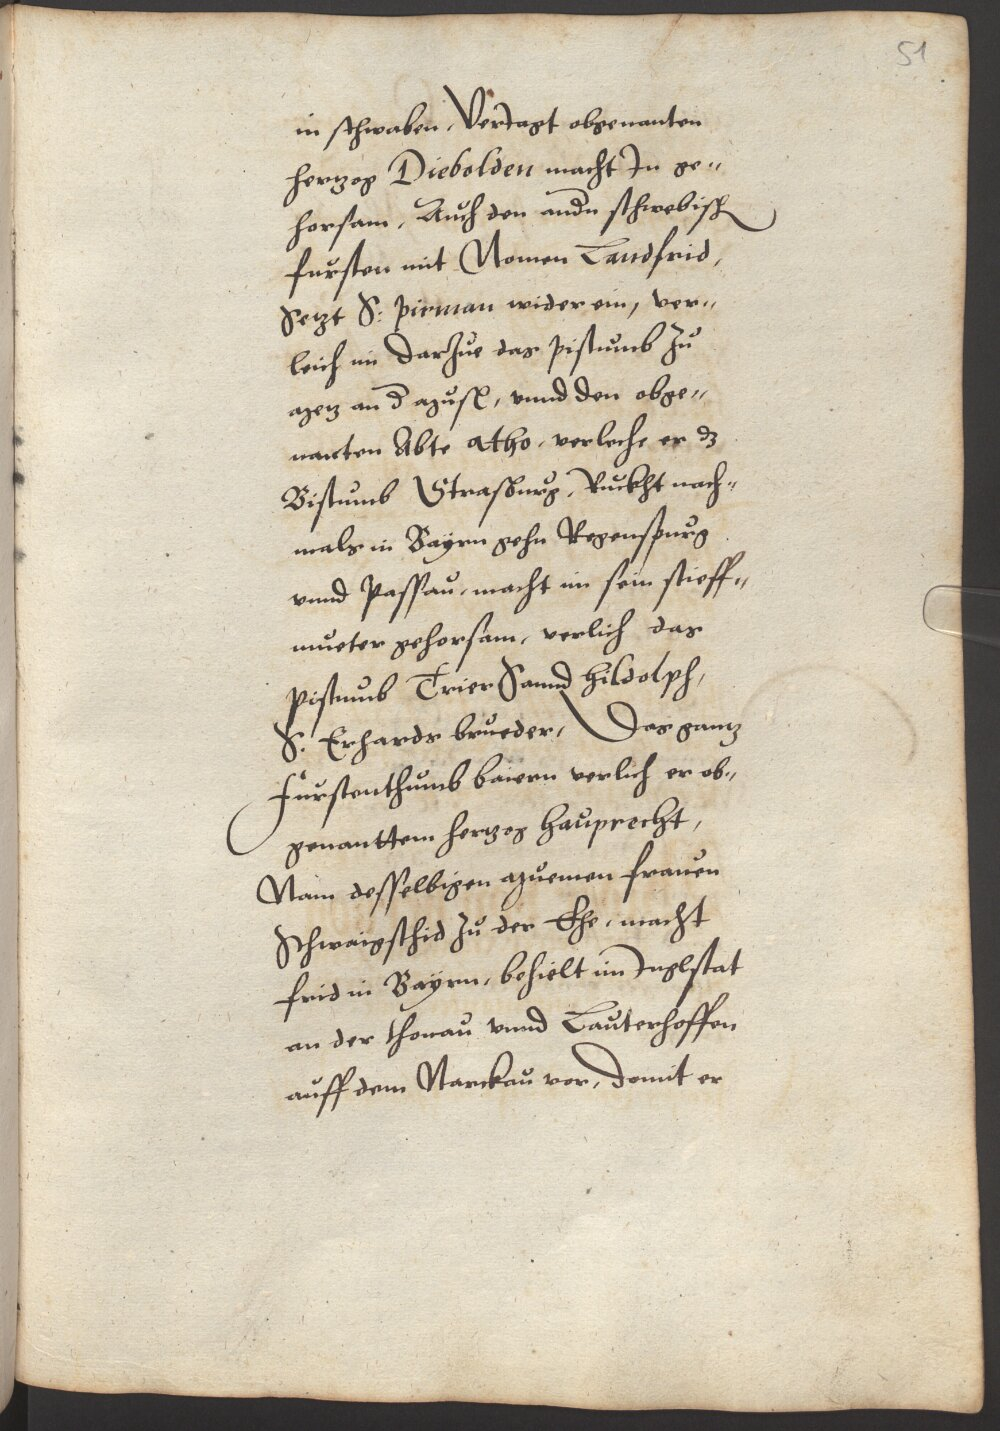 51
in schwaben, Verjagt obgenanten
hertzog Diebolden macht In ge„
horsam, Auch den andn schwebisch
fursten mit Namen Landfrid,
Setzt S: pirman wider ein, ver„
leich im darzue das pistumb zu
metz an d musl, vnnd den obge„
nanten Abte atho, verleche er dz
Bistumb Strasburg, Ruckht nach„
mals in Bayrn gehn Regenspurg
vnnd Passau, macht im sein stieff„
mueter gehorsam, verlich das
pistumb Trier Sannd Hildolph,
S. Erhards brueder, Das gantz
furstenthumb baiern verlich er ob„
genanttem hertzog Hauprecht,
Nam desselbigen frauen
Schwaigschid zu der Ehe, macht
frid in Bayrn, behielt im Inglstat
an der thonau vnnd Lauterhoffen
auff dem Narckau vor, domit er